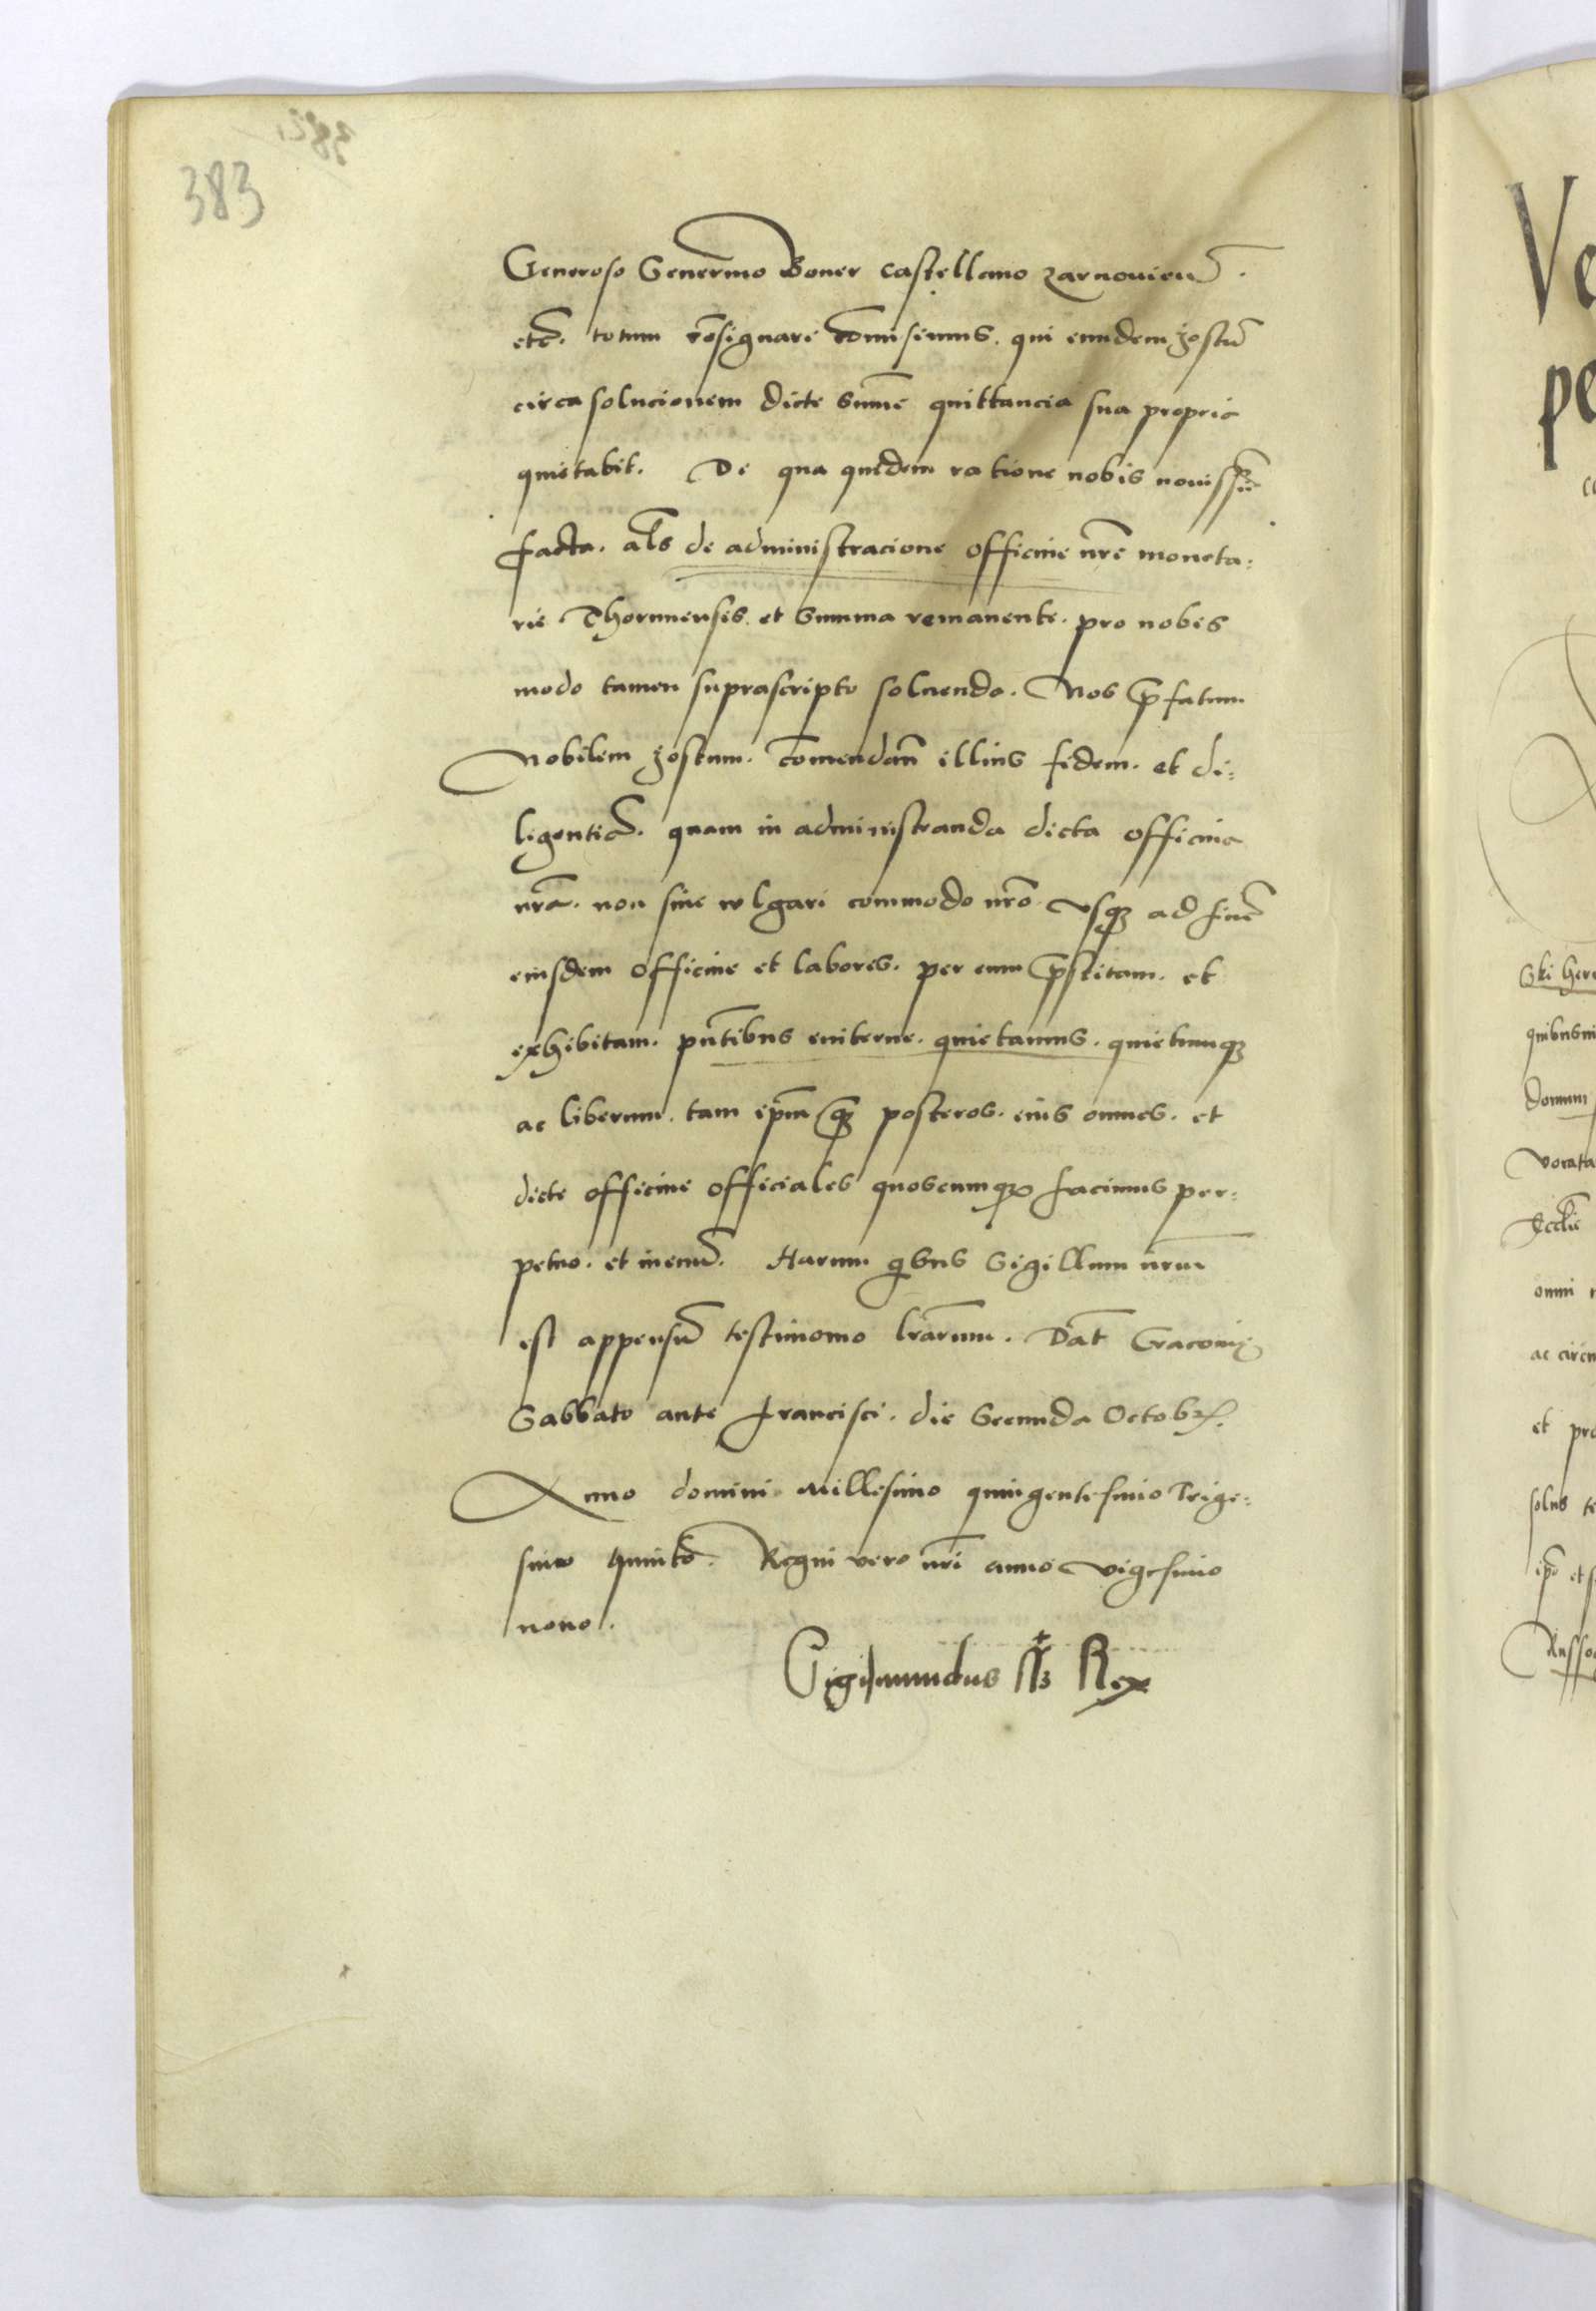 383
Generoso Severino Boner Castellano zarnovien̄.
etc̄. totum cōsignari cōmisimus. qui eundem Jostū
circa solucionem dicte sum̄e quittancia sua propria
quietabit. De qua quidem ratione nobis
facta. al̄s de administracione officine nr̄e moneta:
rie Thorunensis. et summa remanente. pro nobis
modo tamen suprascripto soluenda. Nos p̄fatum
Nobilem Jostum. cōmendan̄ illius fidem. et di:
ligentiā. quam in administranda dicta officina
nr̄a. non sine wlgari commodo nr̄o vsq3 ad finē
eiusdem officine et labores. per eum p̄stitam. et
exhibitam. pn̄tibus eviterne. quietamus. quietumq3
ac liberum. tam ip̄m q̄3 posteros. eius omnes. et
dicte officine officiales quoscumq3 facimus per:
petuo. et in evū. Harum qibus Sigillum nr̄um
est appensū testimonio lr̄arum. Dat̄ Cracovię
Sabbato ante francisci. die Secunda Octobr̄.
Anno domini Millesimo quingentesimo Trige:
simo quinto. Regni vero nr̄i anno vigesimo
nono.
Sigismundus Rex
Ve
pe
Ski here
quibusvi
Domum
vocata
Eccl̄ie
omni
ac circu
et pro
solus te
ip̄o et